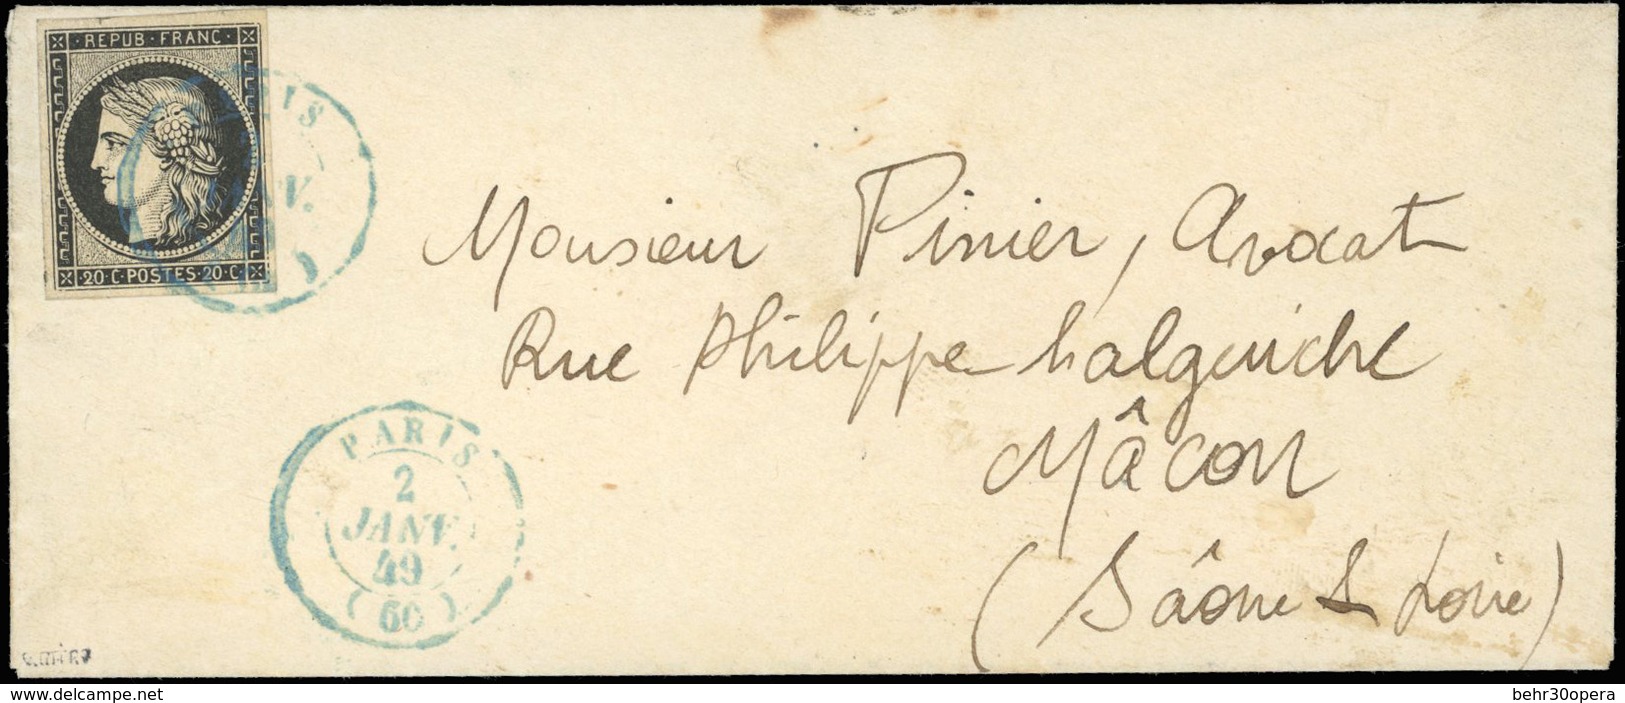 REPUB·FRANC·
20·C·POSTES·20·C·
PARIS
2
JANV.
49
(60)
Monsieur Pinier, Avocat
Rue Philippe
Mâcon
(Saône & Loire)
PARIS
2
JANV.
49
(60)
www.delcampe.net
behr30opera